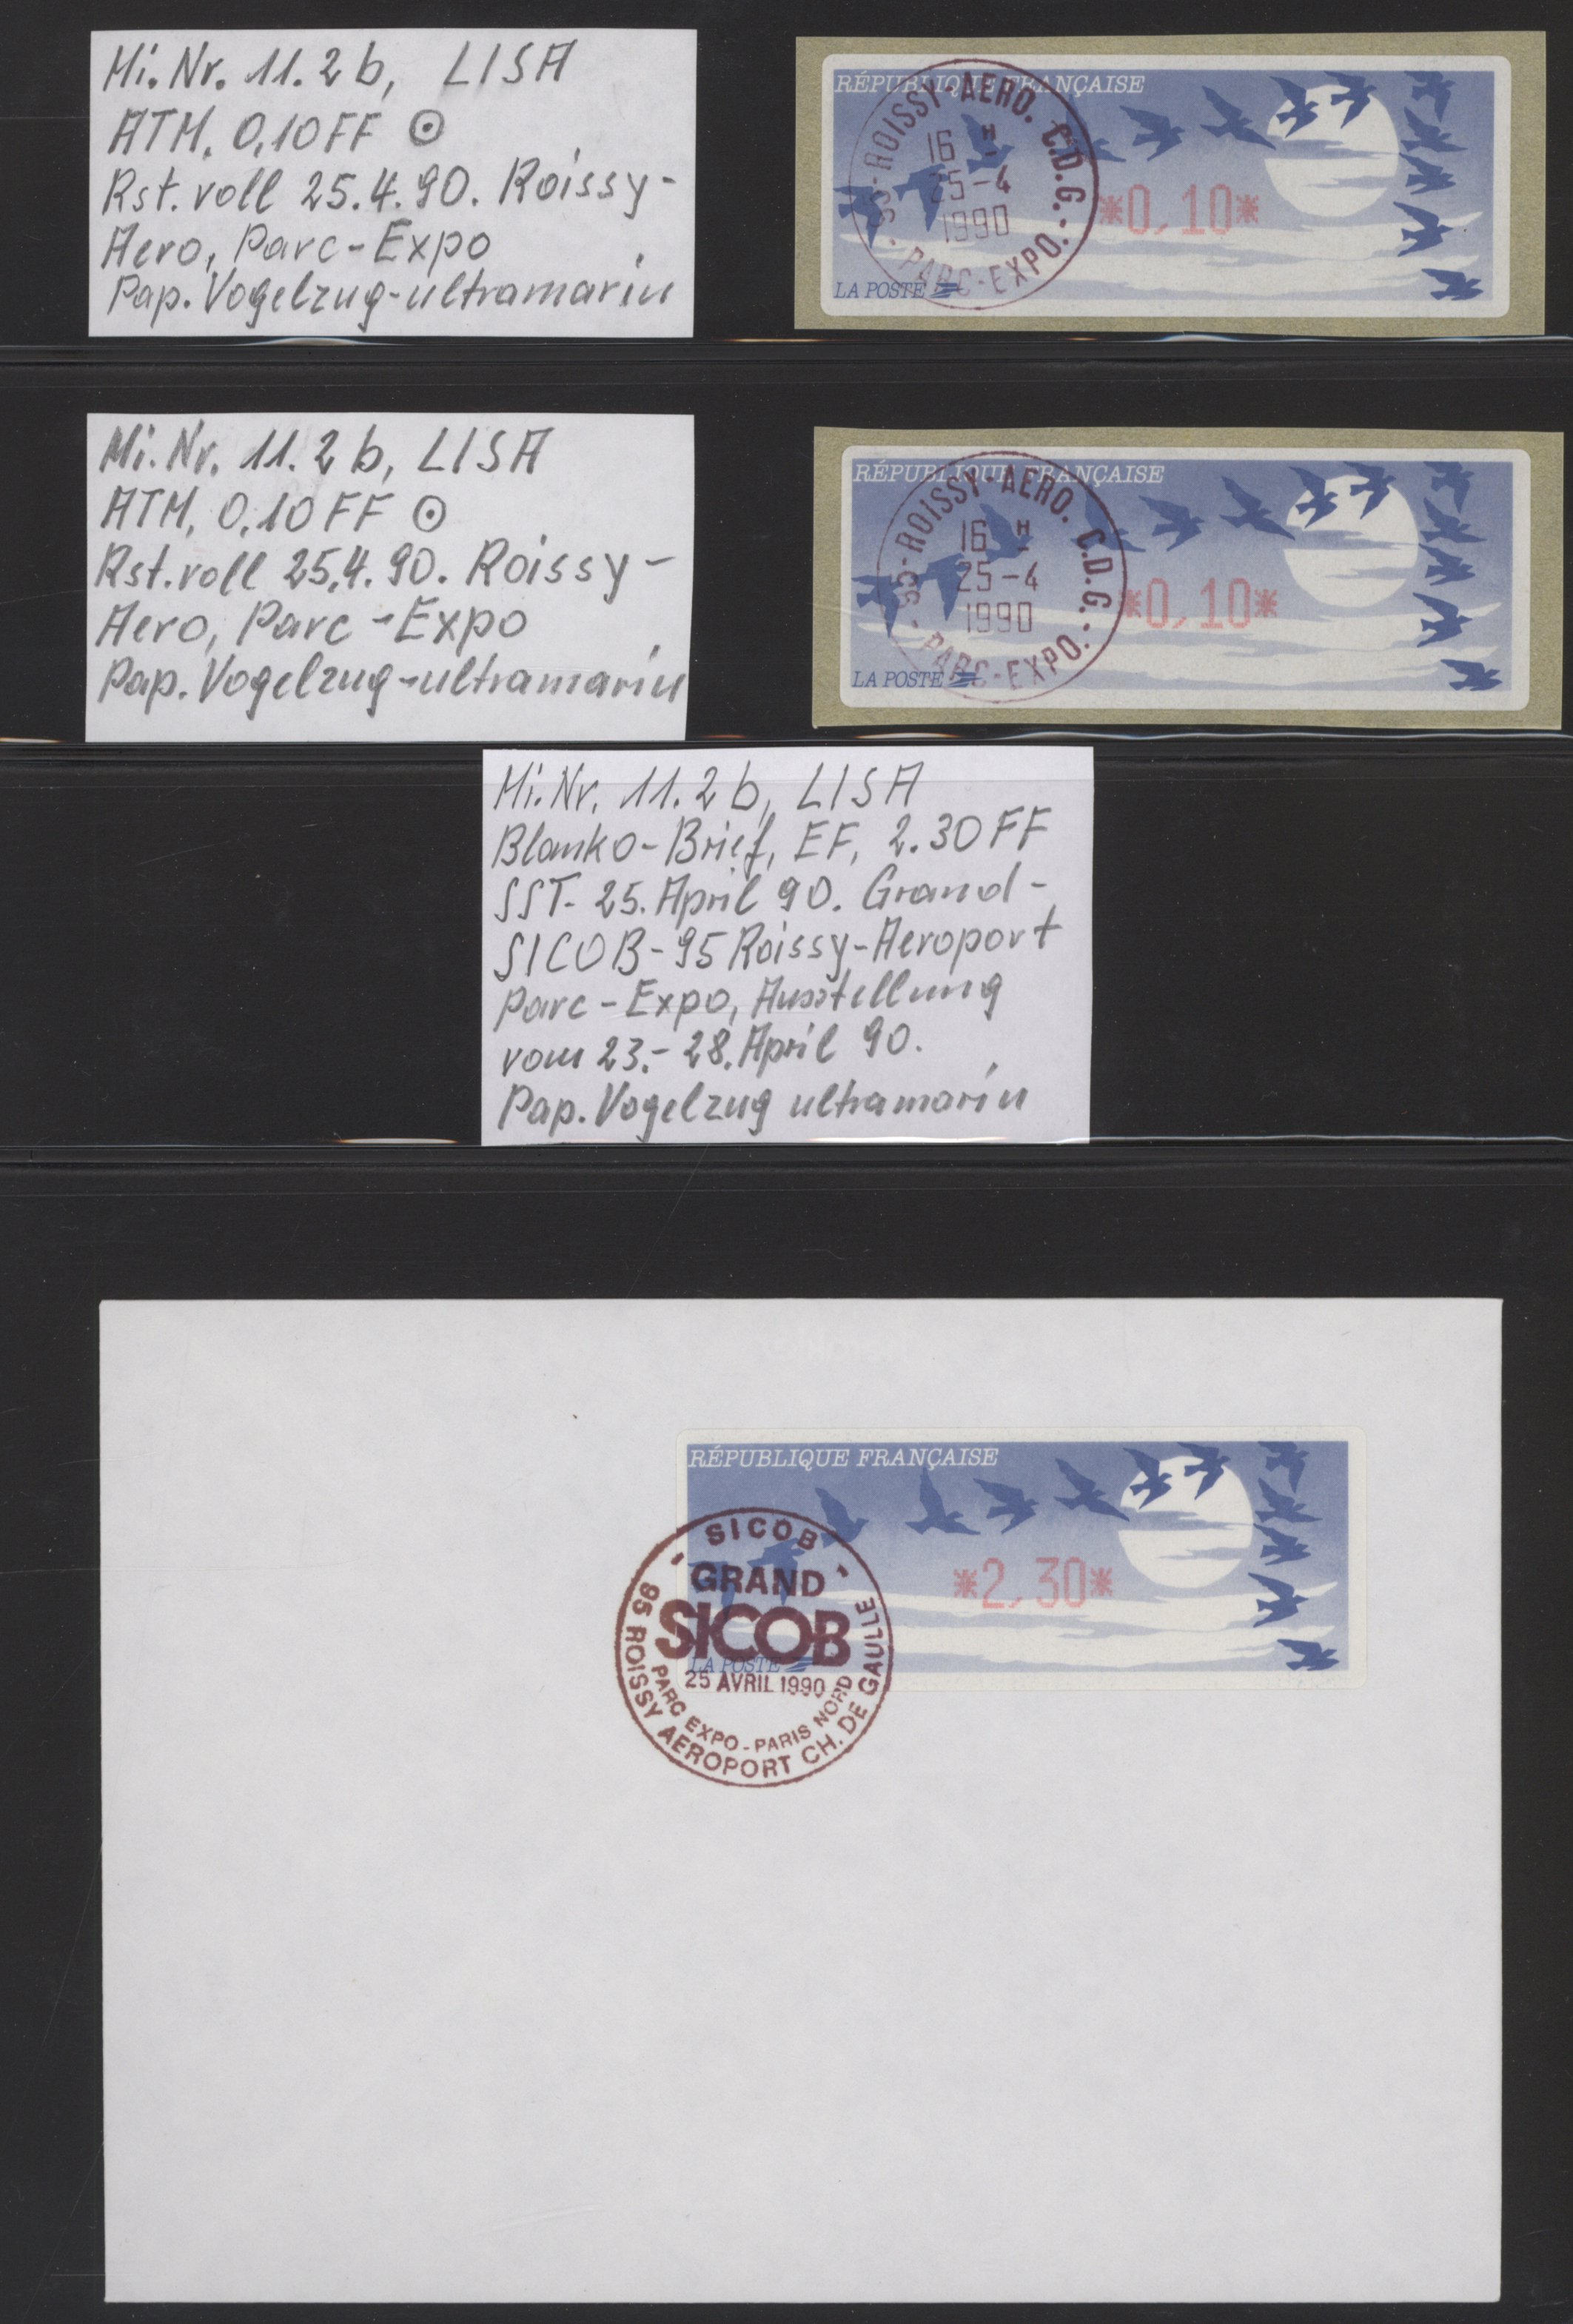 Mi. Nr. 11. 2 b, LISA
ATM. 0,10 FF ⊙
Rst. voll 25.4.90. Roissy-
Aero, Parc-Expo
Pap. Vogelzug-ultramarin
RÉPUBLIQUE FRANÇAISE
95-ROISSY-AERO. C.D.G.
16 H
25-4
1990
PARC-EXPO.
*0,10*
LA POSTE
Mi. Nr. 11. 2 b, LISA
ATM, 0,10 FF ⊙
Rst. voll 25.4.90. Roissy-
Aero, Parc-Expo
Pap. Vogelzug-ultramarin
RÉPUBLIQUE FRANÇAISE
95-ROISSY-AERO. C.D.G.
16 H
25-4
1990
PARC-EXPO.
*0,10*
LA POSTE
Mi. Nr. 11. 2 b, LISA
Blanko-Brief, EF, 2.30 FF
SST- 25. April 90. Grand-
SICOB-95 Roissy-Aeroport
Parc-Expo, Ausstellung
vom 23.-28. April 90.
Pap. Vogelzug ultramarin
RÉPUBLIQUE FRANÇAISE
*2,30*
LA POSTE
SICOB
GRAND
SICOB
25 AVRIL 1990
PARC EXPO - PARIS NORD
95 ROISSY AEROPORT CH. DE GAULLE